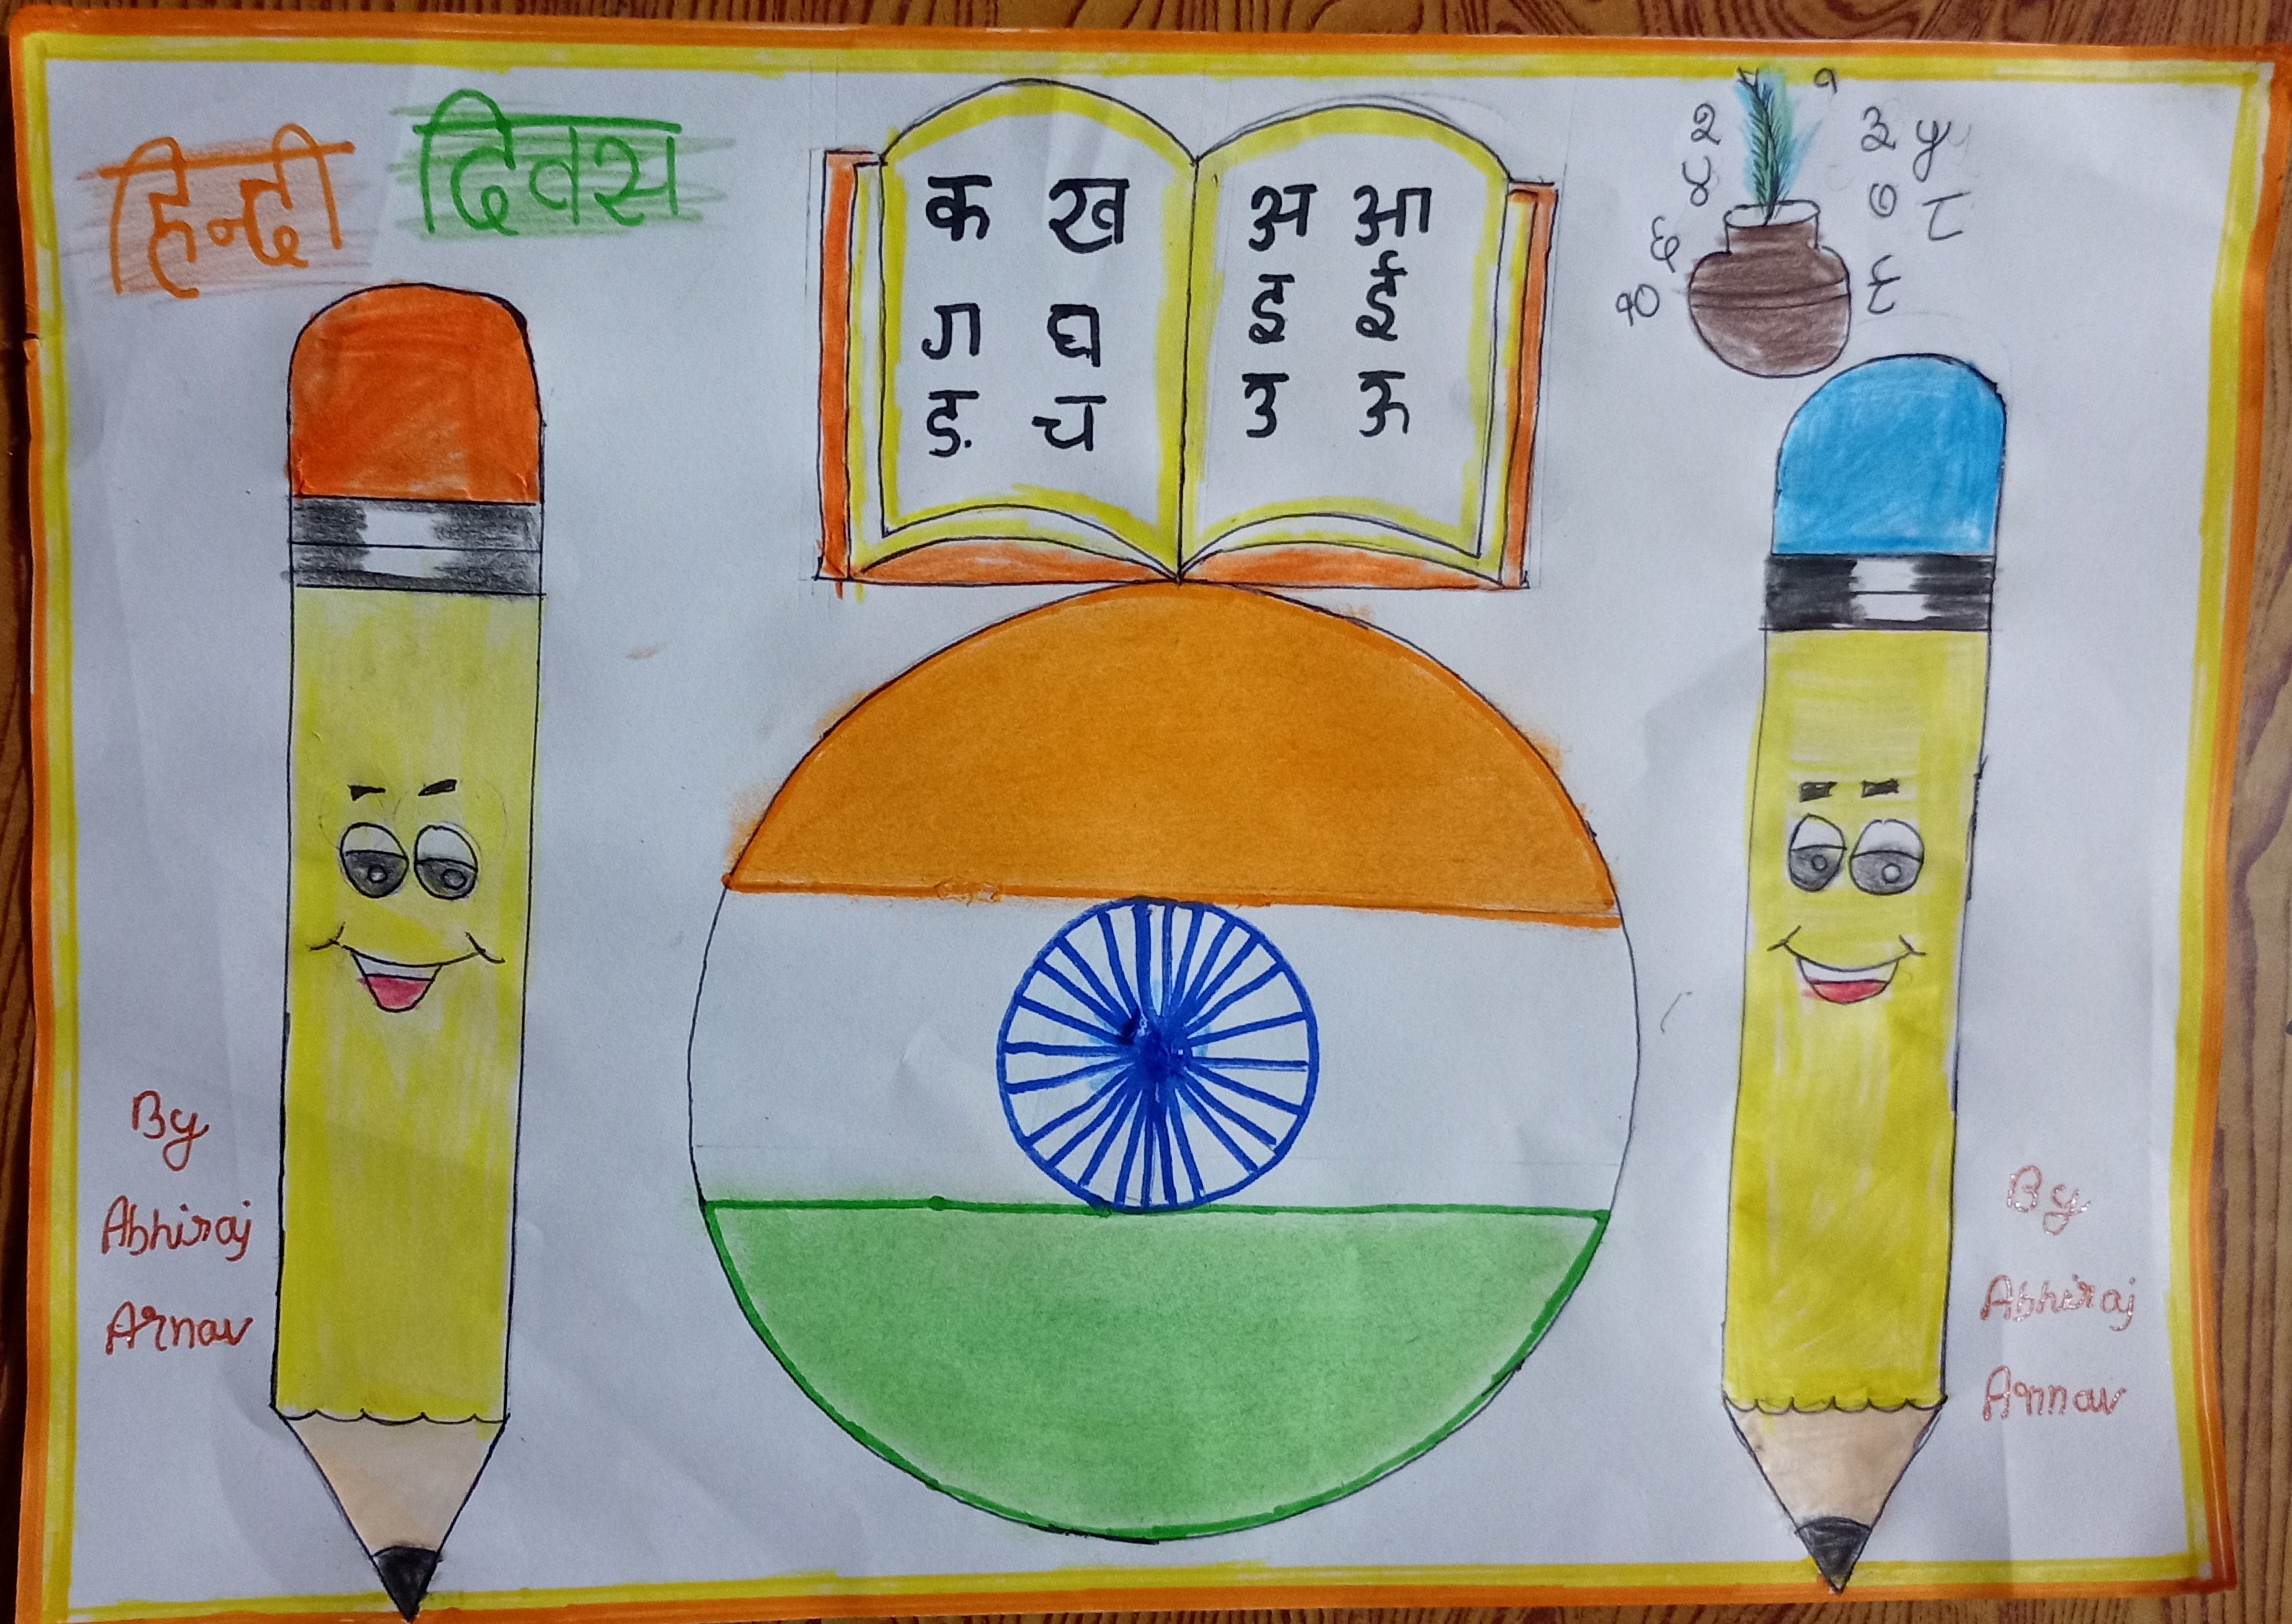 हिन्दी दिवस
क ख
ग घ
ङ च
अ आ
इ ई
उ ऊ
१
२ ३ ५
४ ७ ८
६ ९
१०
By
Abhiraj
Arnav
By
Abhiraj
Arnav